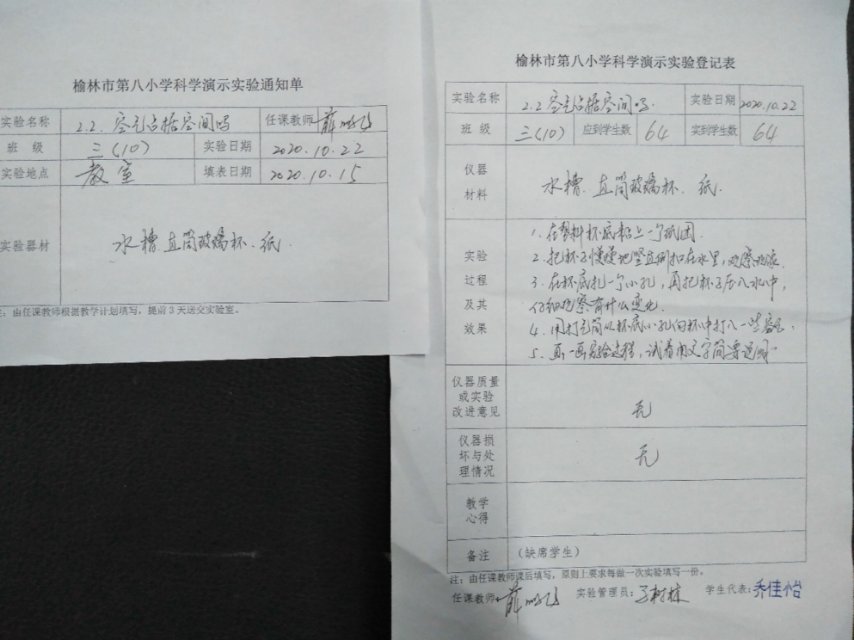 榆林市第八小学科学演示实验通知单
实验名称 2.2. 空气占据空间吗 任课教师
班 级 三(10) 实验日期 2020.10.22
实验地点 教室 填表日期 2020.10.15
实验器材 水槽 直筒玻璃杯、纸.
注：由任课教师根据教学计划填写，提前3天送交实验室。
榆林市第八小学科学演示实验登记表
实验名称 2.2 空气占据空间吗. 实验日期 2020.10.22
班 级 三(10) 应到学生数 64 实到学生数 64
仪器
材料
水槽、直筒玻璃杯、纸.
实验
过程
及其
效果
1. 在塑料杯底粘上一个纸团.
2. 把杯子慢慢地竖直倒扣在水里,观察现象.
3. 在杯底扎一个小孔,再把杯子压入水中,
仔细观察有什么变化.
4. 用打气筒从杯底小孔向杯中打入一些空气.
5. 画一画实验过程,试着用文字简要说明.
仪器质量
或实验
改进意见
无
仪器损
坏与处
理情况
无
教学
心得
备注 （缺席学生）
注：由任课教师课后填写，原则上要求每做一次实验填写一份。
任课教师: 实验管理员: 学生代表: 乔佳怡